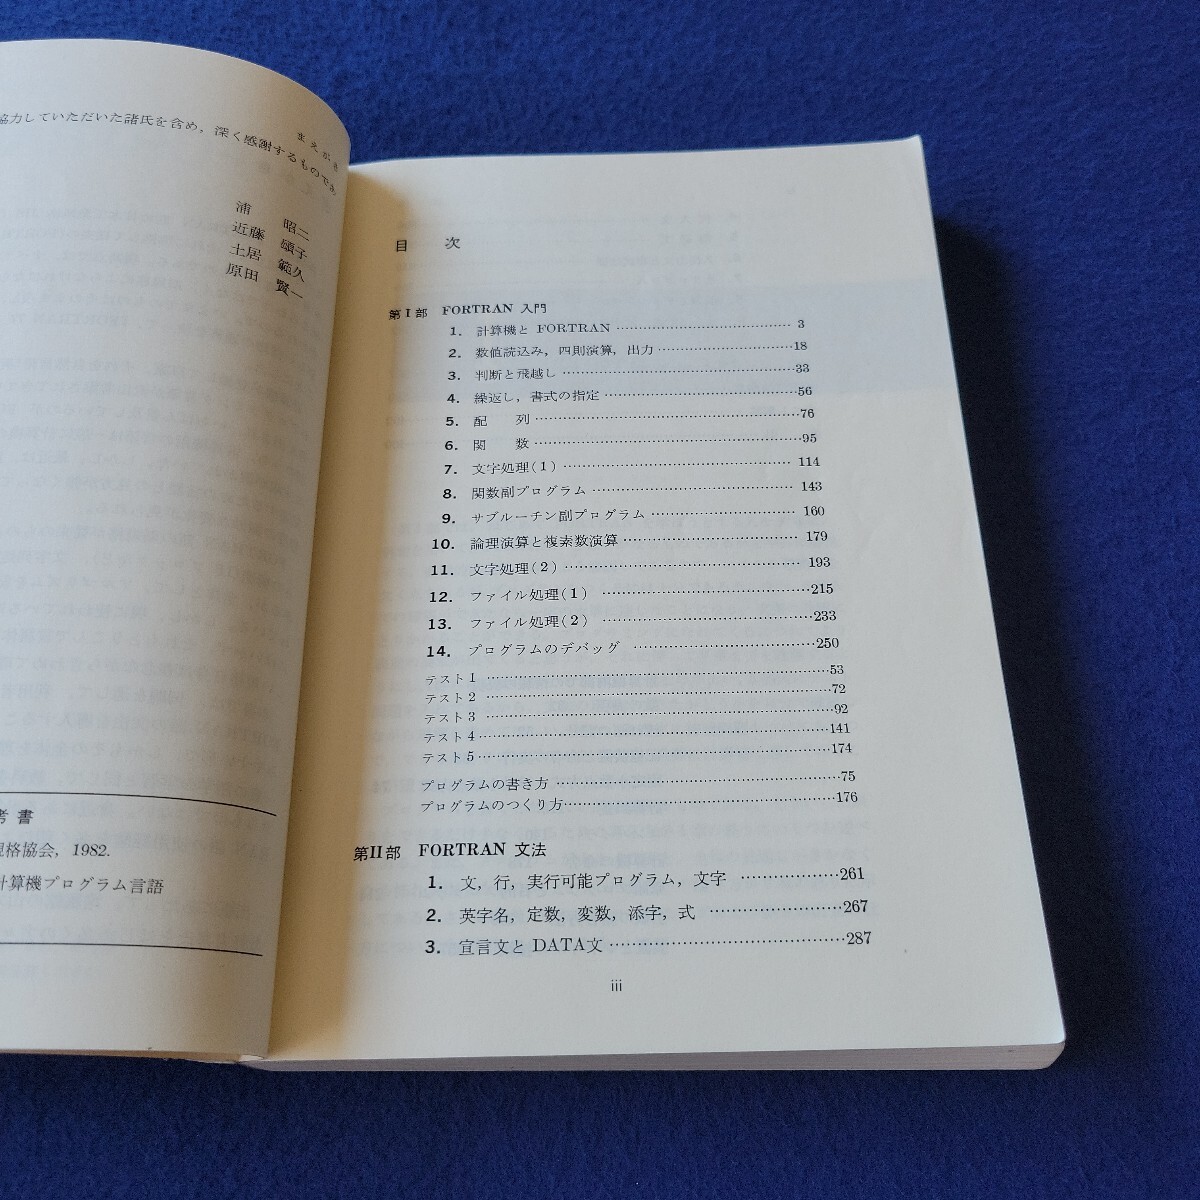 まえがき
協力していただいた諸氏を含め，深く感謝するものであ
浦　昭二
近藤　頌子
土居　範久
原田　賢一
考書
規格協会，1982.
計算機プログラム言語
目　次
第I部　FORTRAN 入門
1.　計算機と FORTRAN ………………………………… 3
2.　数値読込み，四則演算，出力 ………………………… 18
3.　判断と飛越し ………………………………………… 33
4.　繰返し，書式の指定 ………………………………… 56
5.　配　　列 ……………………………………………… 76
6.　関　　数 ……………………………………………… 95
7.　文字処理(1) ………………………………………… 114
8.　関数副プログラム …………………………………… 143
9.　サブルーチン副プログラム ………………………… 160
10.　論理演算と複素数演算 ……………………………… 179
11.　文字処理(2) ………………………………………… 193
12.　ファイル処理(1) …………………………………… 215
13.　ファイル処理(2) …………………………………… 233
14.　プログラムのデバッグ ……………………………… 250
テスト1 ………………………………………………… 53
テスト2 ………………………………………………… 72
テスト3 ………………………………………………… 92
テスト4 ………………………………………………… 141
テスト5 ………………………………………………… 174
プログラムの書き方 …………………………………… 75
プログラムのつくり方 ………………………………… 176
第II部　FORTRAN 文法
1.　文，行，実行可能プログラム，文字 ……………… 261
2.　英字名，定数，変数，添字，式 …………………… 267
3.　宣言文と DATA文 …………………………………… 287
iii